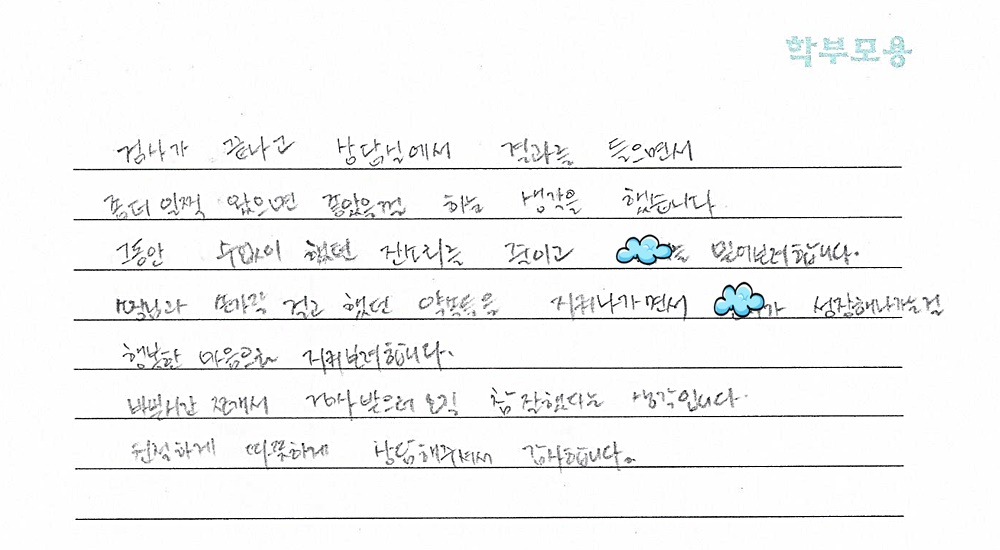 학부모용
검사가 끝나고 상담실에서 결과를 들으면서
좀더 일찍 왔으면 좋았을껄 하는 생각을 했습니다
그동안 수없이 했던 잔소리를 줄이고 를 믿어보려합니다.
과 손가락 걸고 했던 약속들을 지켜나가면서 가 성장해나가는걸
행복한 마음으로 지켜보려합니다.
바쁜시간 쪼개서 검사 받으러 오길 참 잘했다는 생각입니다.
친절하게 따뜻하게 상담해주셔서 감사합니다.